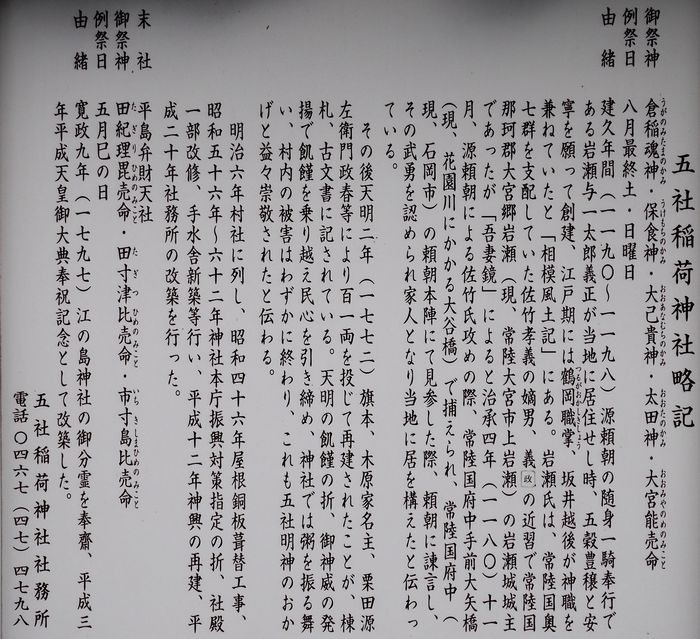 五社稲荷神社略記
御祭神　倉稲魂神・保食神・大己貴神・太田神・大宮能売命
うがのみたまのかみ　うけもちのかみ　おおあなむちのかみ　おおたのかみ　おおみやのめのみこと
例祭日　八月最終土・日曜日
由緒　建久年間（一一九〇～一一九八）源頼朝の随身一騎奉行で
ある岩瀬与一太郎義正が当地に居住せし時、五穀豊穣と安
寧を願って創建、江戸期には鶴岡職掌　坂井越後が神職を
つるがおかしきしょう
兼ねていたと「相模風土記」にある。岩瀬氏は、常陸国奥
七群を支配していた佐竹孝義の嫡男、義政の近習で常陸国
那珂郡大宮郷岩瀬（現、常陸大宮市上岩瀬）の岩瀬城城主
であったが「吾妻鏡」によると治承四年（一一八〇）十一
月、源頼朝による佐竹氏攻めの際、常陸国府中手前大矢橋
（現、花園川にかかる大谷橋）で捕えられ、常陸国府中（
現、石岡市）の頼朝本陣にて見参した際、頼朝に諫言し、
その武勇を認められ家人となり当地に居を構えたと伝わっ
ている。
その後天明二年（一七七二）旗本、木原家名主、栗田源
左衛門政春等により百一両を投じて再建されたことが、棟
札、古文書に記されている。天明の飢饉の折、御神威の発
揚で飢饉を乗り越え民心を引き締め、神社では粥を振る舞
い、村内の被害はわずかに終わり、これも五社明神のおか
げと益々崇敬されたと伝わる。
明治六年村社に列し、昭和四十六年屋根銅板葺替工事、
昭和五十六年～六十二年神社本庁振興対策指定の折、社殿
一部改修、手水舎新築等行い、平成十二年神輿の再建、平
成二十年社務所の改築を行った。
末社　平島弁財天社
御祭神　田紀理毘売命・田寸津比売命・市寸島比売命
たぎりひめのみこと　たぎつひめのみこと　いちきしまひめのみこと
例祭日　五月巳の日
由緒　寛政九年（一七九七）江の島神社の御分霊を奉齋、平成三
年平成天皇御大典奉祝記念として改築した。
五社稲荷神社社務所
電話〇四六七（四七）四七九八